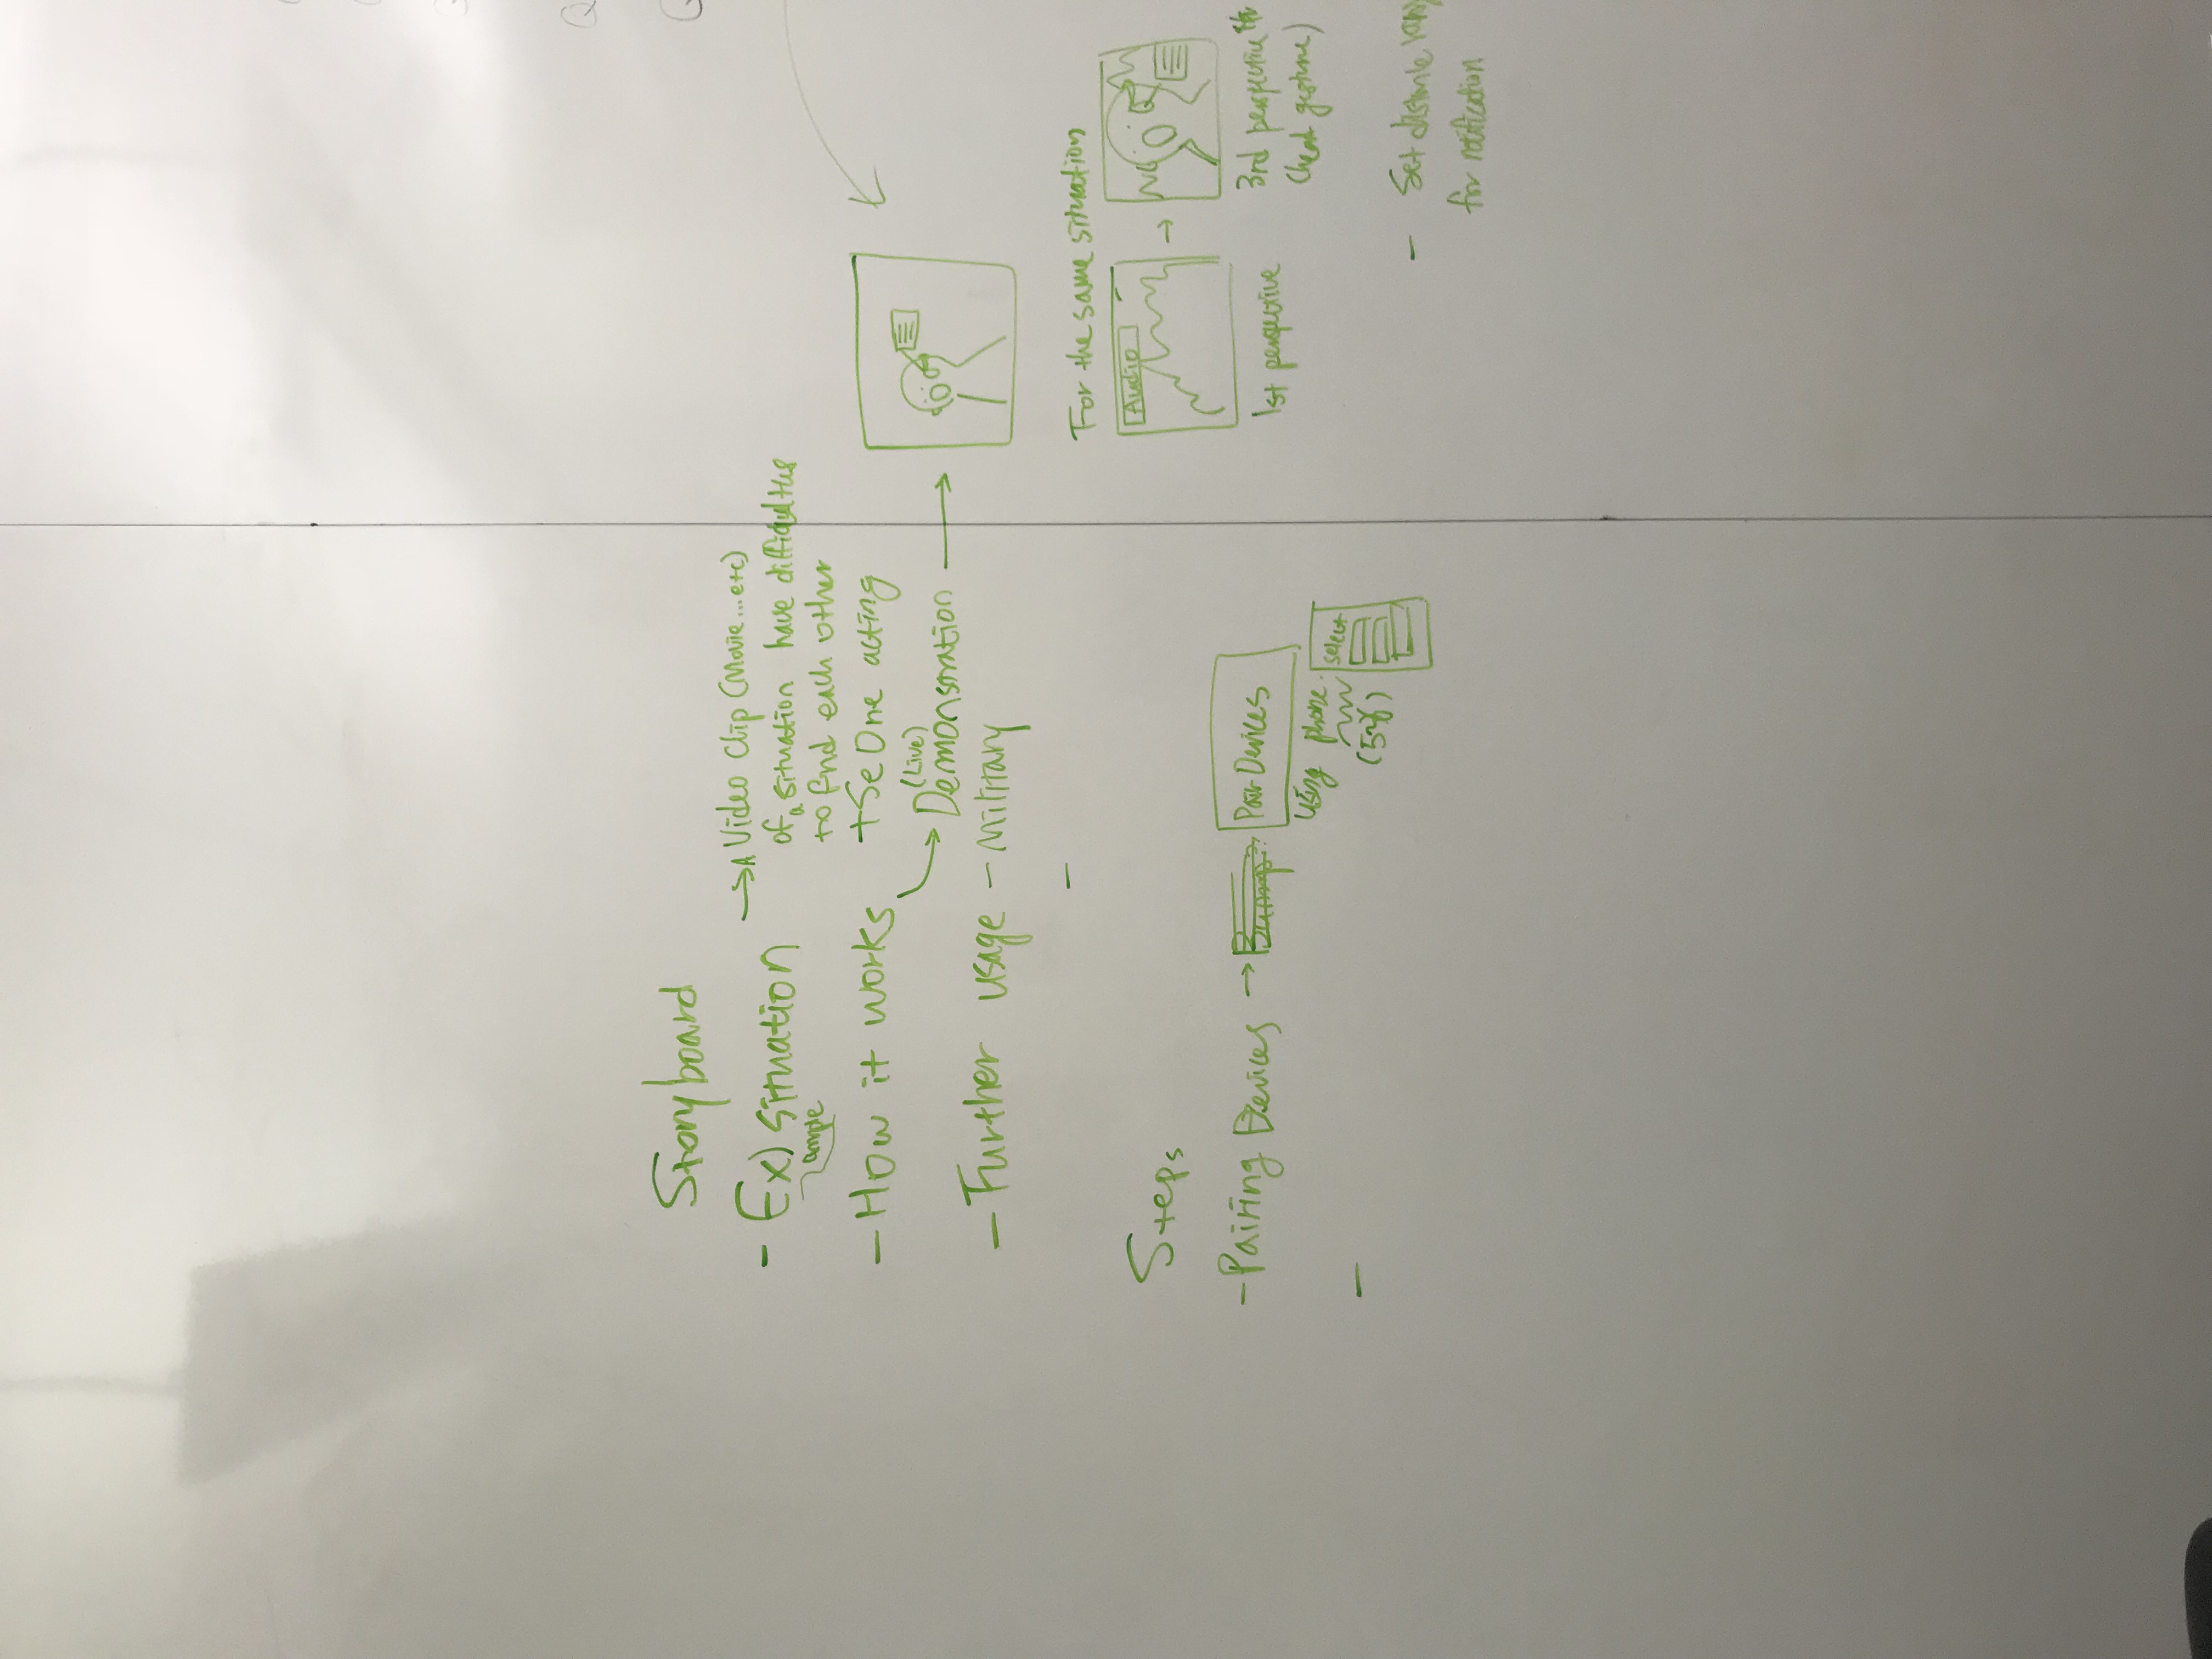 Storyboard
- Ex) situation
ample
→ A Video Clip (Movie...etc)
of a situation have difficulties
to find each other
+ SeOne acting
- How it works
(Live)
Demonstration
- Further usage - Military
-
Steps
- Pairing Devices →
Pair Devices
using phone.
select
-
For the same situation
Audio
→
1st perspective
3rd perspective
(head gesture)
- Set distance
for notification
Q
Q